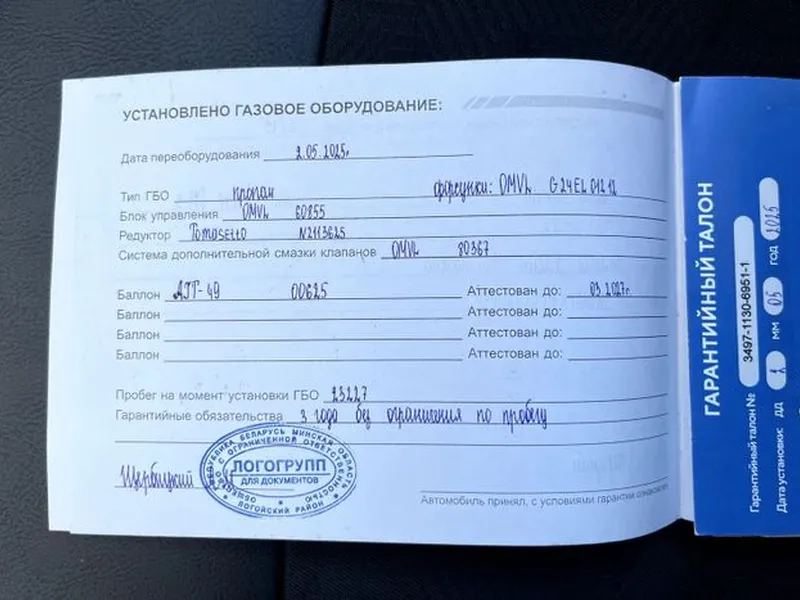 УСТАНОВЛЕНО ГАЗОВОЕ ОБОРУДОВАНИЕ:
Дата переоборудования 2.05.2025г
Тип ГБО пропан форсунки: OMVL G24EL01212
Блок управления OMVL 60855
Редуктор Tomasetto N2113625
Система дополнительной смазки клапанов OMVL 80367
Баллон АГГ-49 00625 Аттестован до: 03.2027г.
Баллон Аттестован до:
Баллон Аттестован до:
Баллон Аттестован до:
Пробег на момент установки ГБО 23227
Гарантийные обязательства 3 года без ограничения по пробегу
Щербицкий
РЕСПУБЛИКА БЕЛАРУСЬ МИНСКАЯ ОБЛАСТЬ
ОБЩЕСТВО С ОГРАНИЧЕННОЙ ОТВЕТСТВЕННОСТЬЮ
ЛОГОГРУПП
ДЛЯ ДОКУМЕНТОВ
ЛОГОЙСКИЙ РАЙОН
Автомобиль принял, с условиями гарантии
ГАРАНТИЙНЫЙ ТАЛОН
Гарантийный талон № 3497-1130-6951-1
Дата установки: ДД 2 ММ 05 ГОД 2025